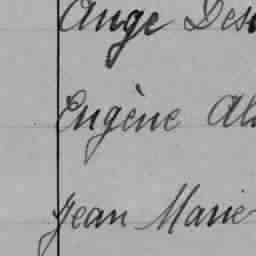 Ange Des
Eugène Al
Jean Marie